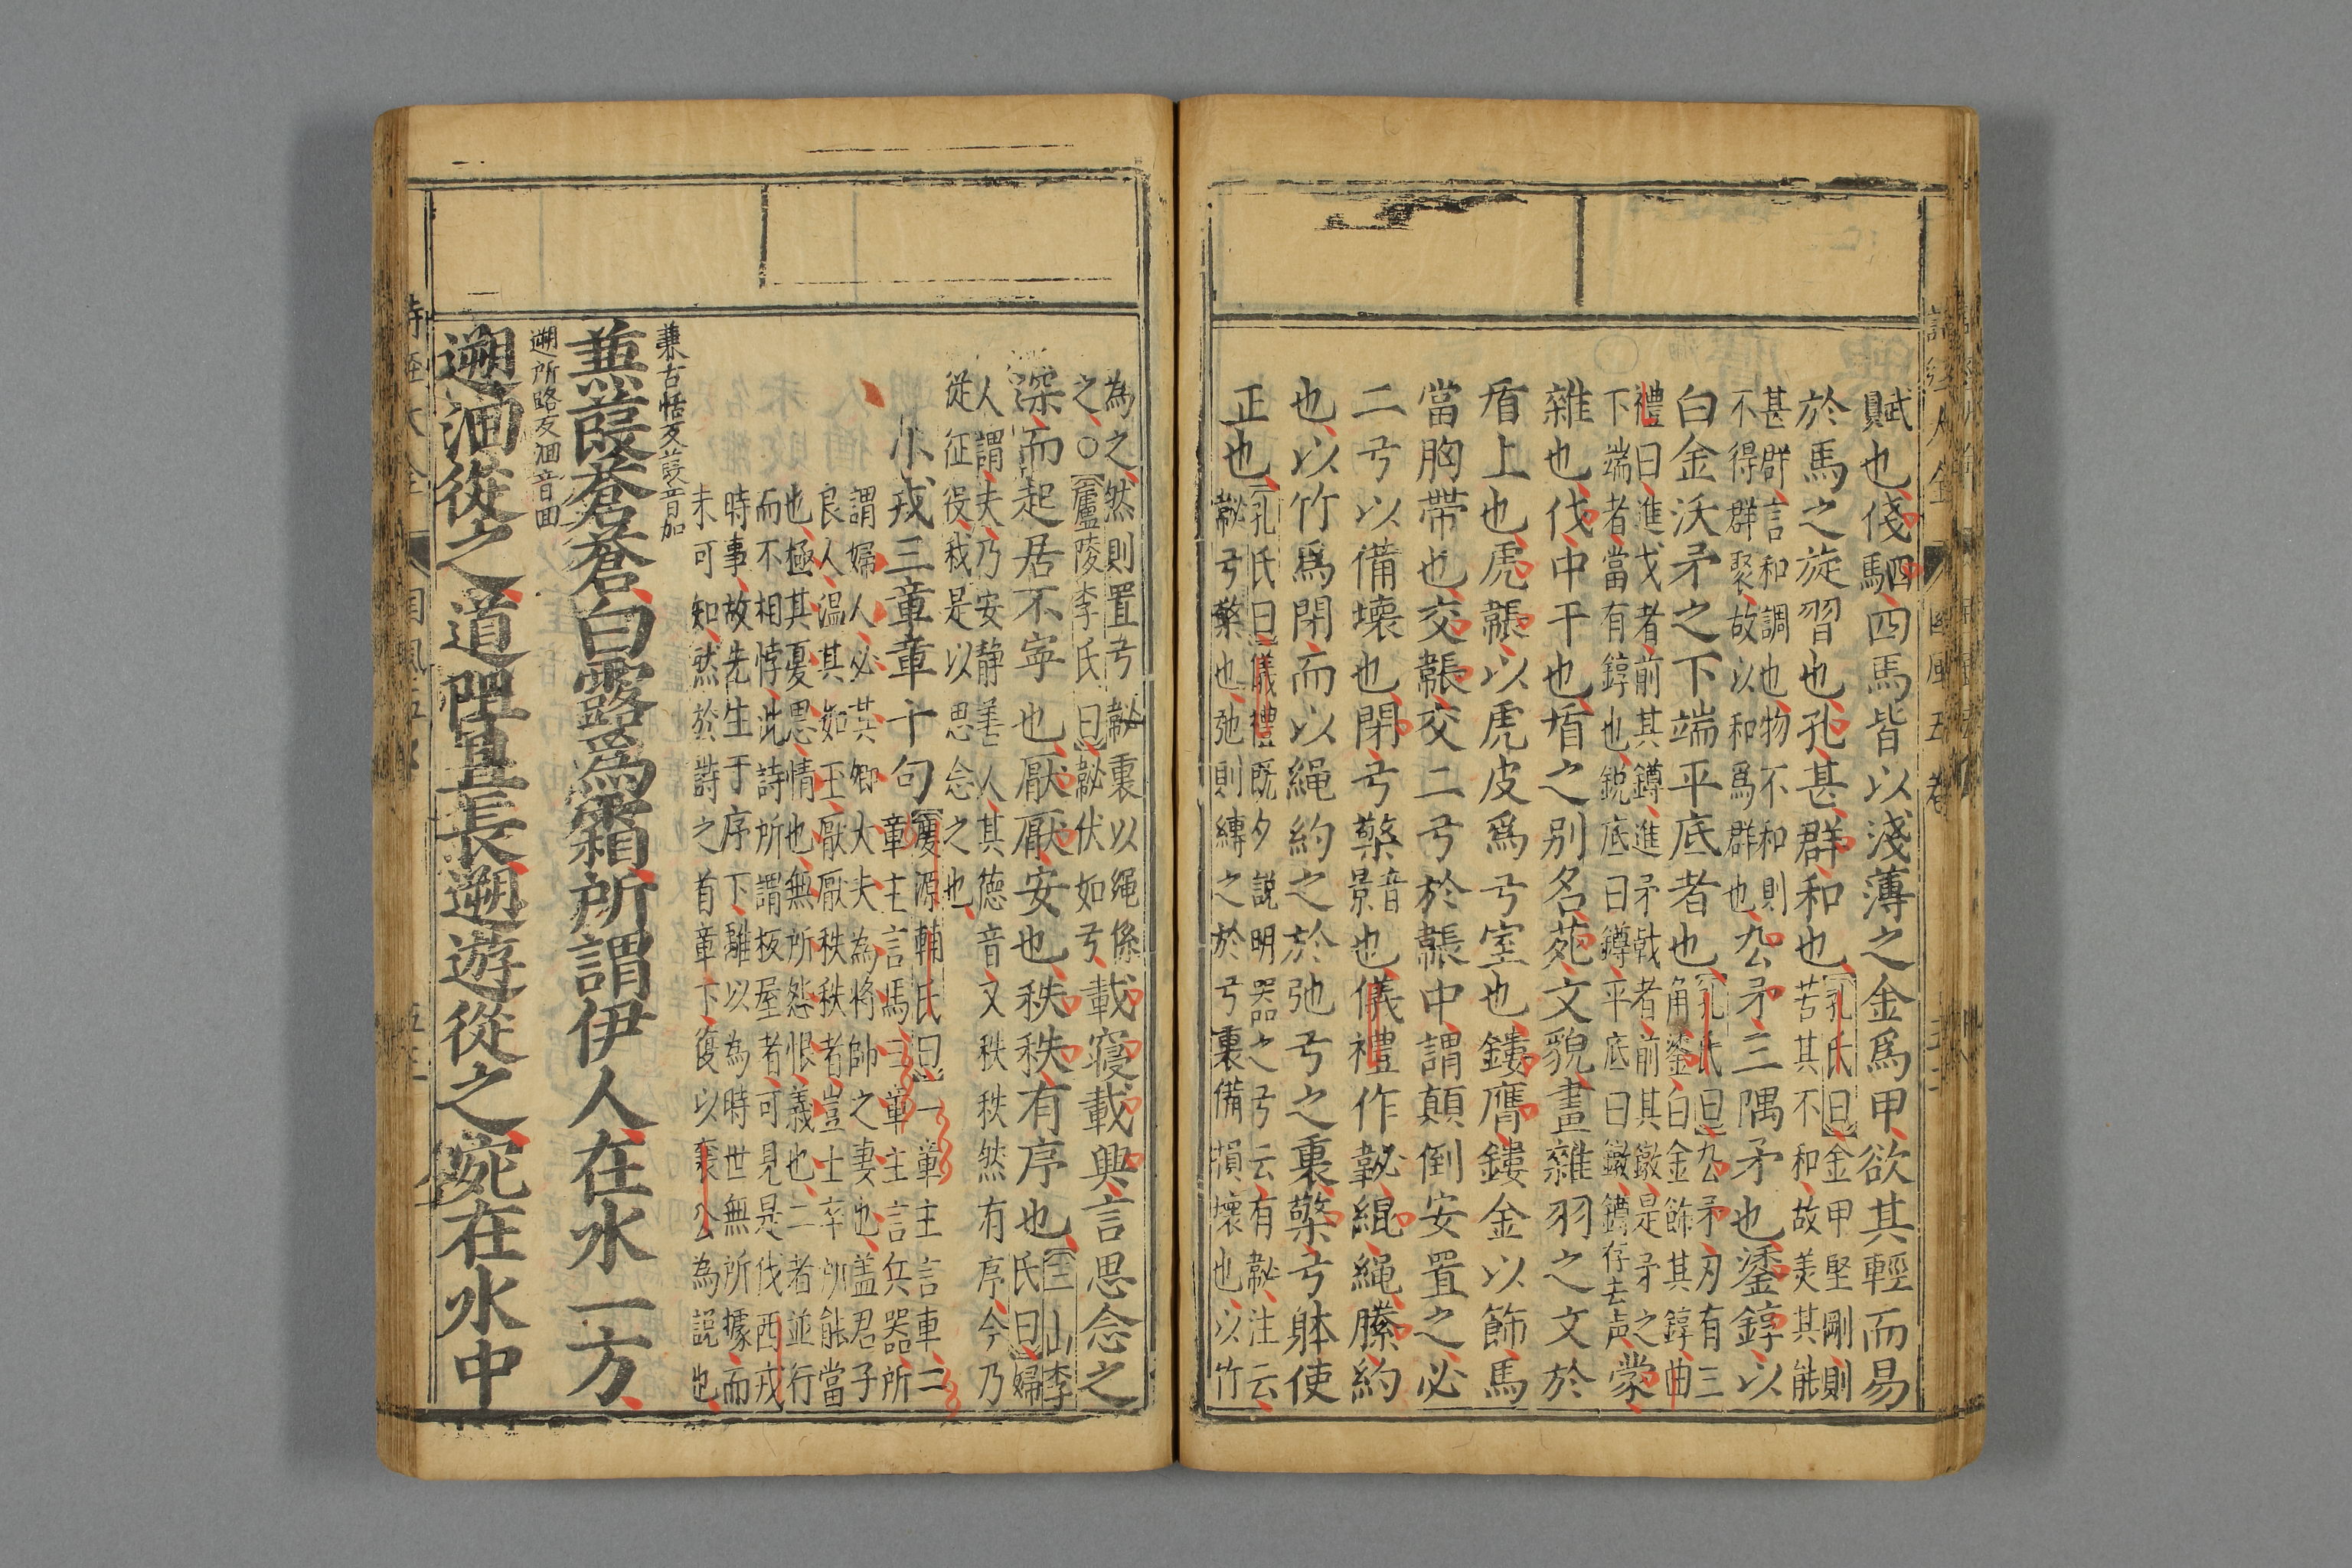 賦也俴駟四馬皆以淺薄之金爲甲欲其輕而易
於馬之旋習也孔甚群和也孔氏曰金甲堅剛則
苦其不和故美其能
甚群言和調也物不和則
不得群聚故以和爲群也厹矛三隅矛也鋈錞以
白金沃矛之下端平底者也孔氏曰厹矛刃有三
角鋈白金飾其錞曲
禮曰進戈者前其鐏進矛戟者前其鐓是矛之
下端者當有錞也銳底曰鐏平底曰鐓鐏存去声蒙
雜也伐中干也盾之别名苑文貌畫雜羽之文於
盾上也虎韔以虎皮爲弓室也鏤膺鏤金以飾馬
當胸帶也交韔交二弓於韔中謂顛倒安置之必
二弓以備壞也閉弓檠音
景也儀禮作䪐緄繩縢約
也以竹爲閉而以繩約之於弛弓之裏檠弓躰使
正也孔氏曰儀禮既夕說明器之弓云有䪐注云
䪐弓檠也弛則縛之於弓裏備損壞也以竹
為之然則置弓䪐裏以繩係
之○廬陵李氏曰䪐伏如弓載寢載興言思念之
深而起居不寧也厭厭安也秩秩有序也三山李
氏曰婦
人謂夫乃安静善人其德音又秩秩然有序今乃
從征役我是以思念之也
小戎三章章十句慶源輔氏曰一章主言車二
章主言馬三章主言兵器所
謂婦人必其卿大夫為將帥之妻也盖君子
良人温其如玉厭厭秩秩者豈士卒所能當
也極其憂思情也無所怨恨義也二者並行
而不相悖此詩所謂板屋者可見是伐西戎
時事故先生于序下雖以為時世無所據而
未可知然於詩之首章下復以襄公為說也
蒹古恬反葭音加
蒹葭蒼蒼白露爲霜所謂伊人在水一方
遡所路反洄音回
遡洄從之道阻且長遡遊從之宛在水中